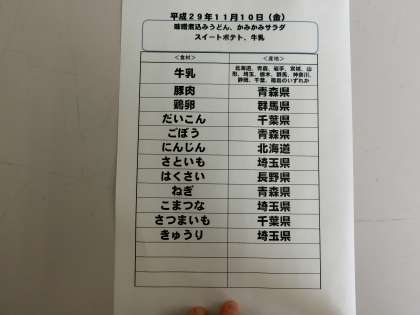 平成29年11月10日（金）
味噌煮込みうどん、かみかみサラダ
スイートポテト、牛乳
＜食材＞ ＜産地＞
牛乳 北海道、青森、岩手、宮城、山
形、埼玉、栃木、群馬、神奈川、
静岡、千葉、福島のいずれか
豚肉 青森県
鶏卵 群馬県
だいこん 千葉県
ごぼう 青森県
にんじん 北海道
さといも 埼玉県
はくさい 長野県
ねぎ 青森県
こまつな 埼玉県
さつまいも 千葉県
きゅうり 埼玉県